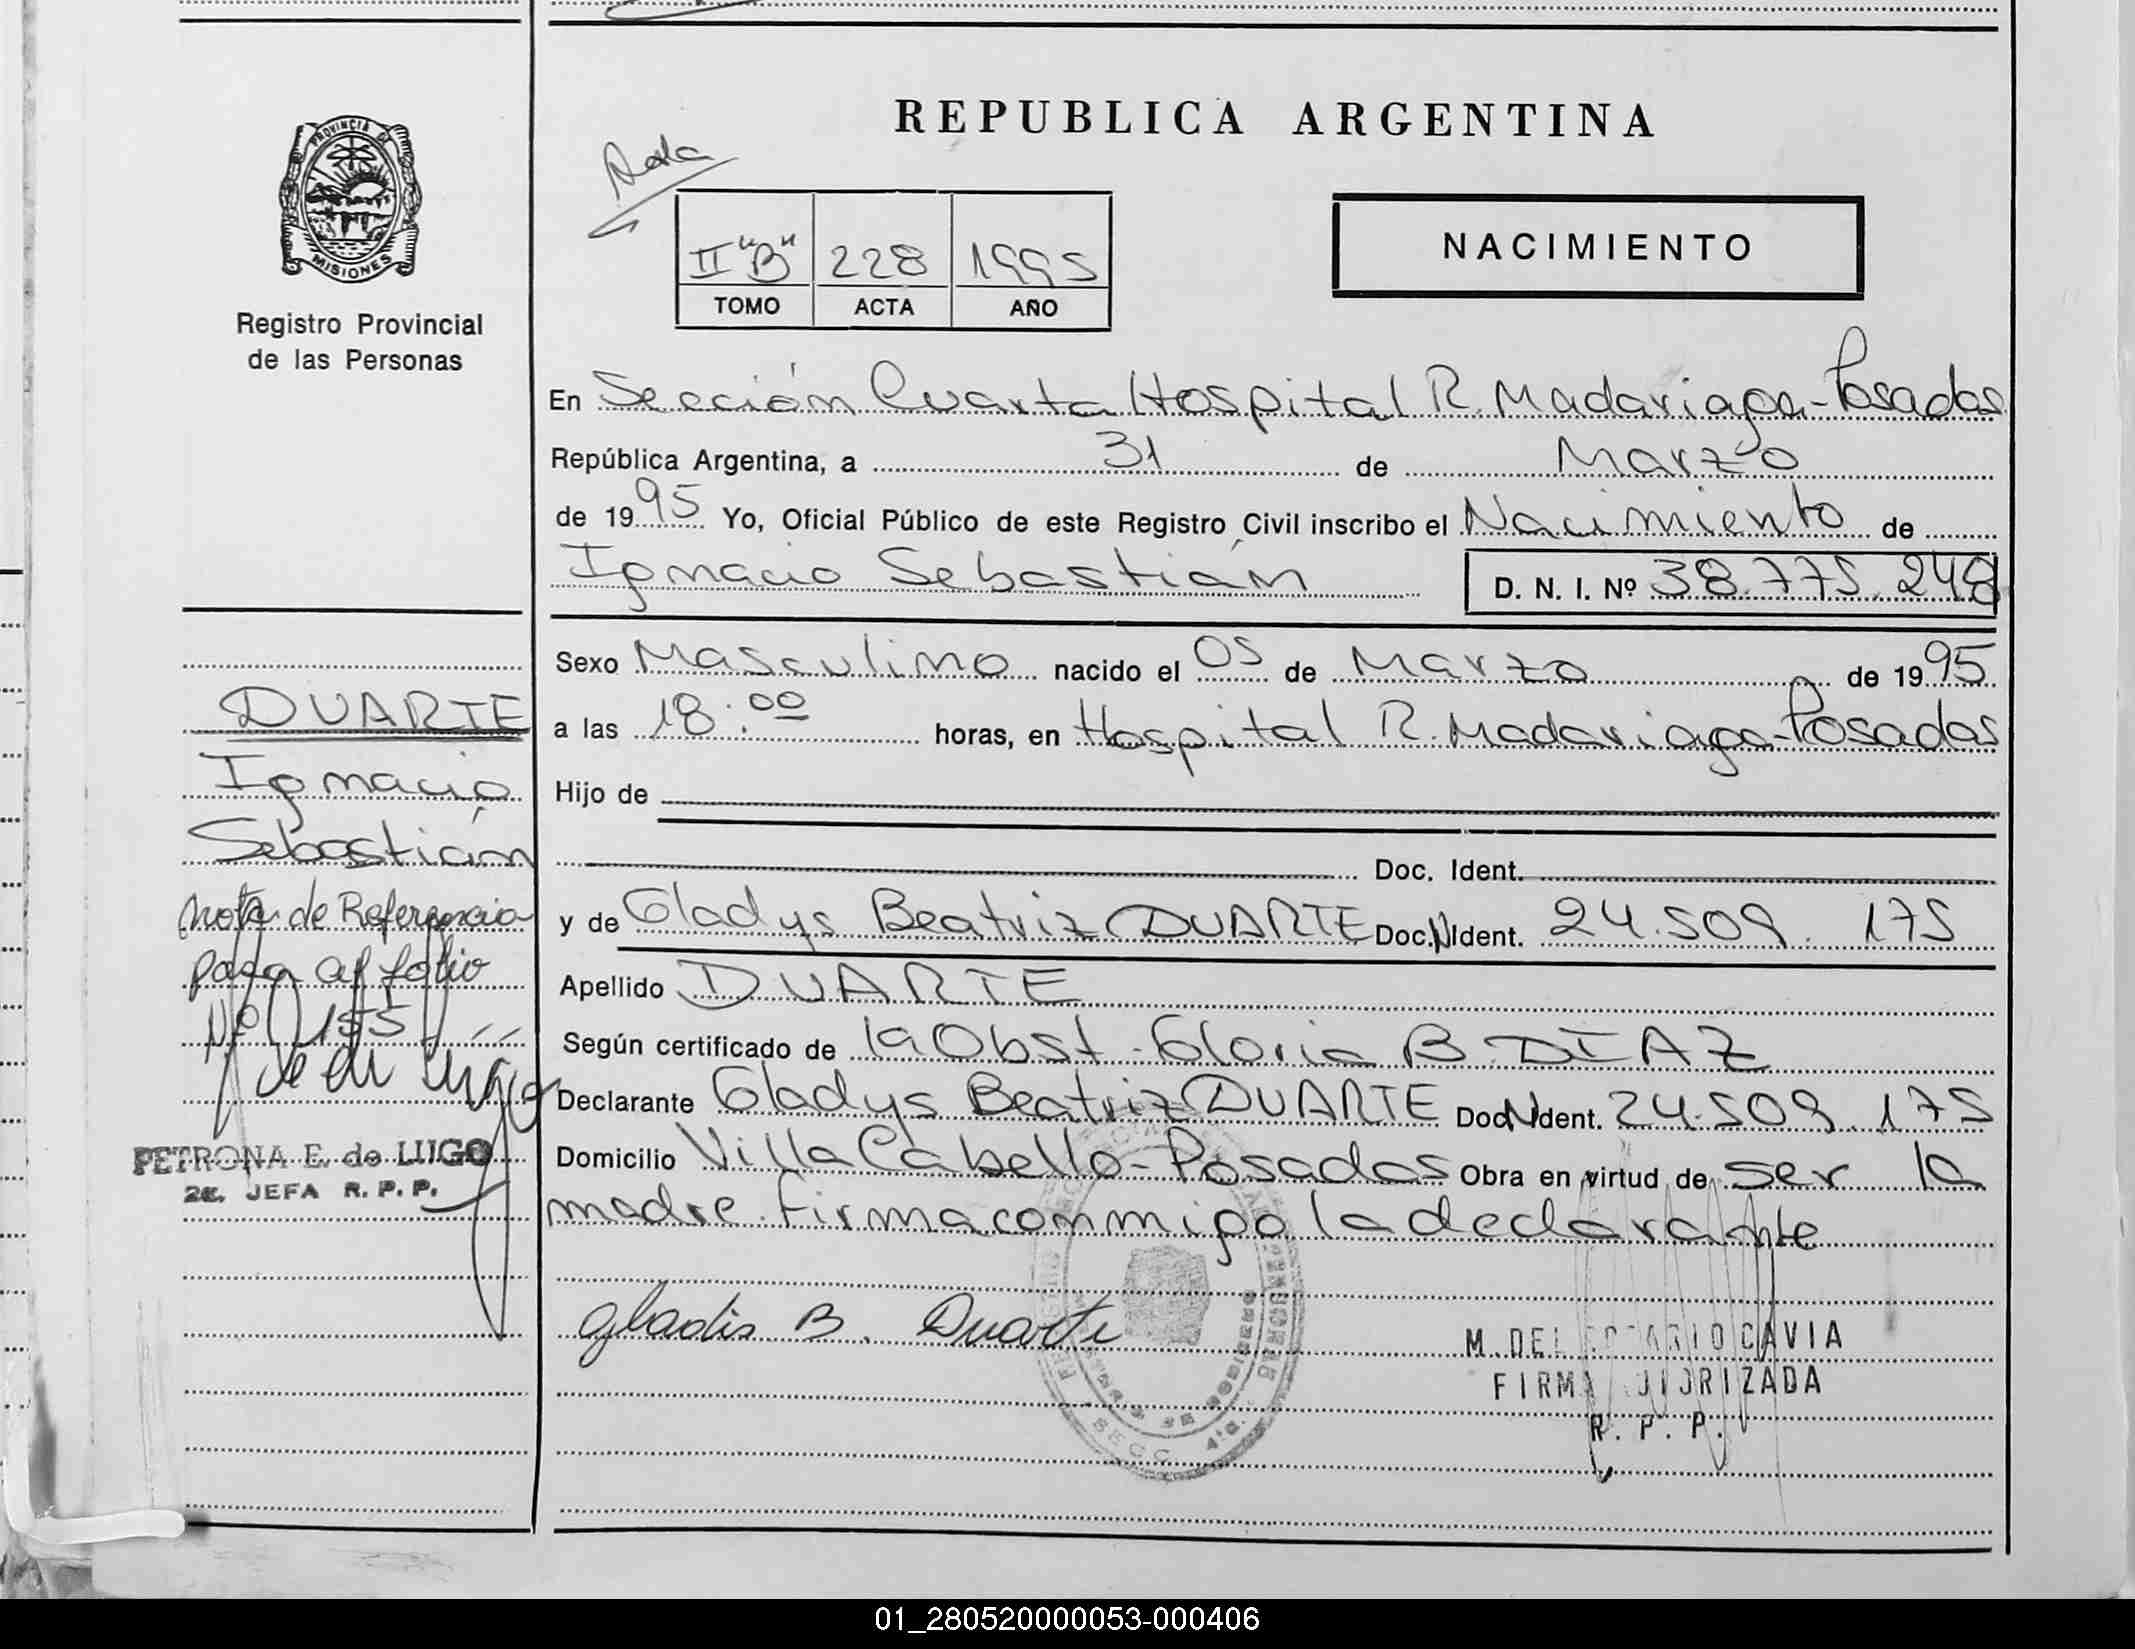 REPUBLICA ARGENTINA
Nota
PROVINCIA DE
MISIONES
Registro Provincial
de las Personas
II "B" 228 1995
TOMO ACTA AÑO
NACIMIENTO
En Sección Cuarta Hospital R. Madariaga - Posadas
República Argentina, a 31 de Marzo
de 1995 Yo, Oficial Público de este Registro Civil inscribo el Nacimiento de
Ignacio Sebastián D. N. I. Nº 38.775.248
Sexo Masculino nacido el 05 de Marzo de 1995
a las 18:00 horas, en Hospital R. Madariaga - Posadas
Hijo de
Doc. Ident.
y de Gladys Beatriz DUARTE Doc.N.Ident. 24.509.175
Apellido DUARTE
Según certificado de la Obst. Gloria B. DIAZ
Declarante Gladys Beatriz DUARTE Doc.N.Ident. 24.509.175
Domicilio Villa Cabello - Posadas Obra en virtud de ser la
madre. firma conmigo la declarante
Gladis B. Duarte
M. DEL ROSARIO CAVIA
FIRMA AUTORIZADA
R. P. P.
DUARTE
Ignacio
Sebastián
Nota de Referencia
pasa al folio
Nº 155
PETRONA E. de LUGO
2da. JEFA R. P. P.
SECC. 4ta.
01_280520000053-000406